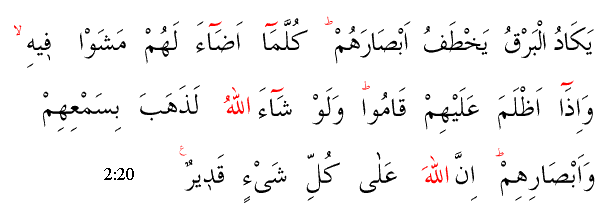 يَكَادُ الْبَرْقُ يَخْطَفُ اَبْصَارَهُمْ ؕ كُلَّمَاۤ اَضَآءَ لَهُمْ مَشَوْا فٖيهِ ۙ
وَاِذَاۤ اَظْلَمَ عَلَيْهِمْ قَامُوا ؕ وَلَوْ شَآءَ اللّٰهُ لَذَهَبَ بِسَمْعِهِمْ
وَاَبْصَارِهِمْ ؕ اِنَّ اللّٰهَ عَلٰى كُلِّ شَیْءٍ قَدٖيرٌ ࣖ 2:20